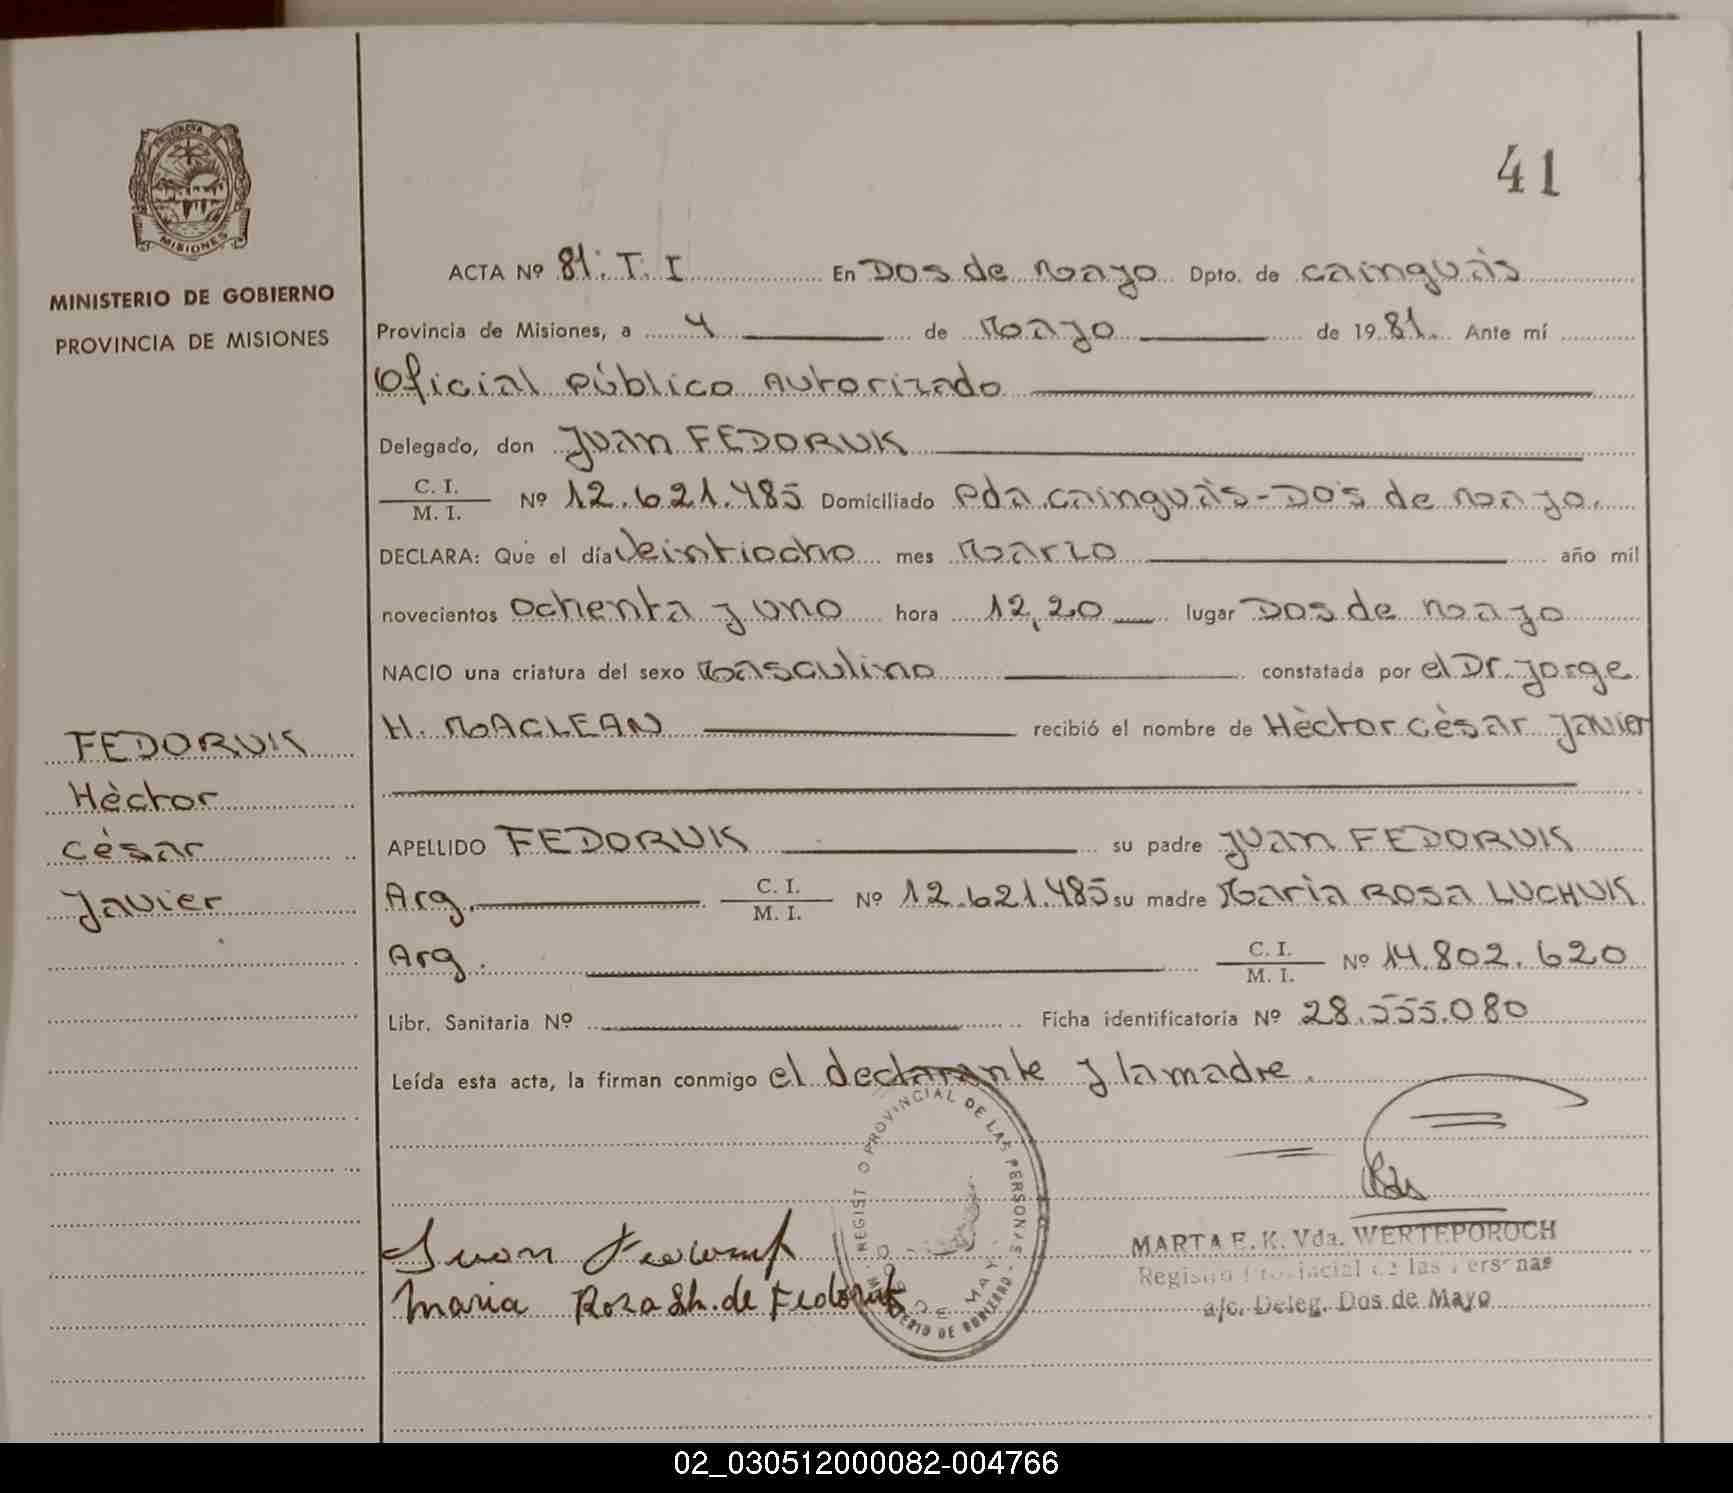 41
PROVINCIA DE
MISIONES
MINISTERIO DE GOBIERNO
PROVINCIA DE MISIONES
ACTA Nº 81. T. I En Dos de Mayo Dpto. de Cainguàs
Provincia de Misiones, a 4 de Mayo de 1981. Ante mí
Oficial Público Autorizado
Delegado, don Juan FEDORUK
C. I.
M. I. Nº 12.621.485 Domiciliado Pda. Cainguàs - Dos de Mayo.
DECLARA: Que el día Veintiocho mes Marzo año mil
novecientos Ochenta y uno hora 12,20 lugar Dos de Mayo
NACIO una criatura del sexo Masculino constatada por el Dr. Jorge
H. MACLEAN recibió el nombre de Hèctor Cèsar Javier
FEDORUK
Hèctor
Cèsar
Javier
APELLIDO FEDORUK su padre Juan FEDORUK
Arg. C. I.
M. I. Nº 12.621.485 su madre Marìa Rosa LUCHUK
Arg. C. I.
M. I. Nº 14.802.620
Libr. Sanitaria Nº Ficha identificatoria Nº 28.555.080
Leída esta acta, la firman conmigo el declarante y la madre.
REGISTRO PROVINCIAL DE LAS PERSONAS
Juan
Maria Rosa de Fedoruk
MARTA E. K. Vda. WERTEPOROCH
Registro Provincial de las Personas
a/c. Deleg. Dos de Mayo
02_030512000082-004766